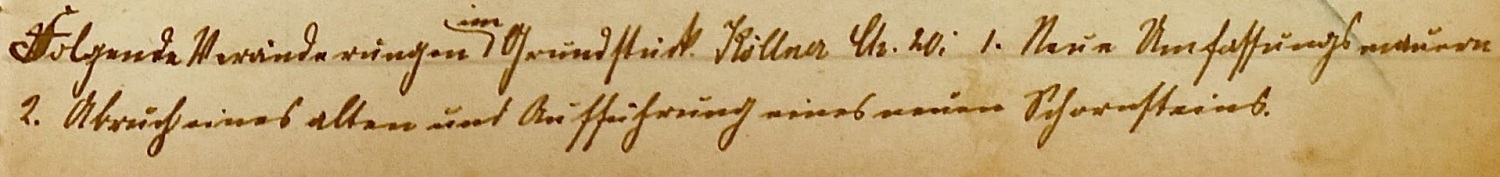 Folgende Veränderungen im Grundstück Köllner Ch. 20: 1. Neue Umfassungsmauern
2. Abruch eines alten und Aufführung eines neuen Schornsteins.